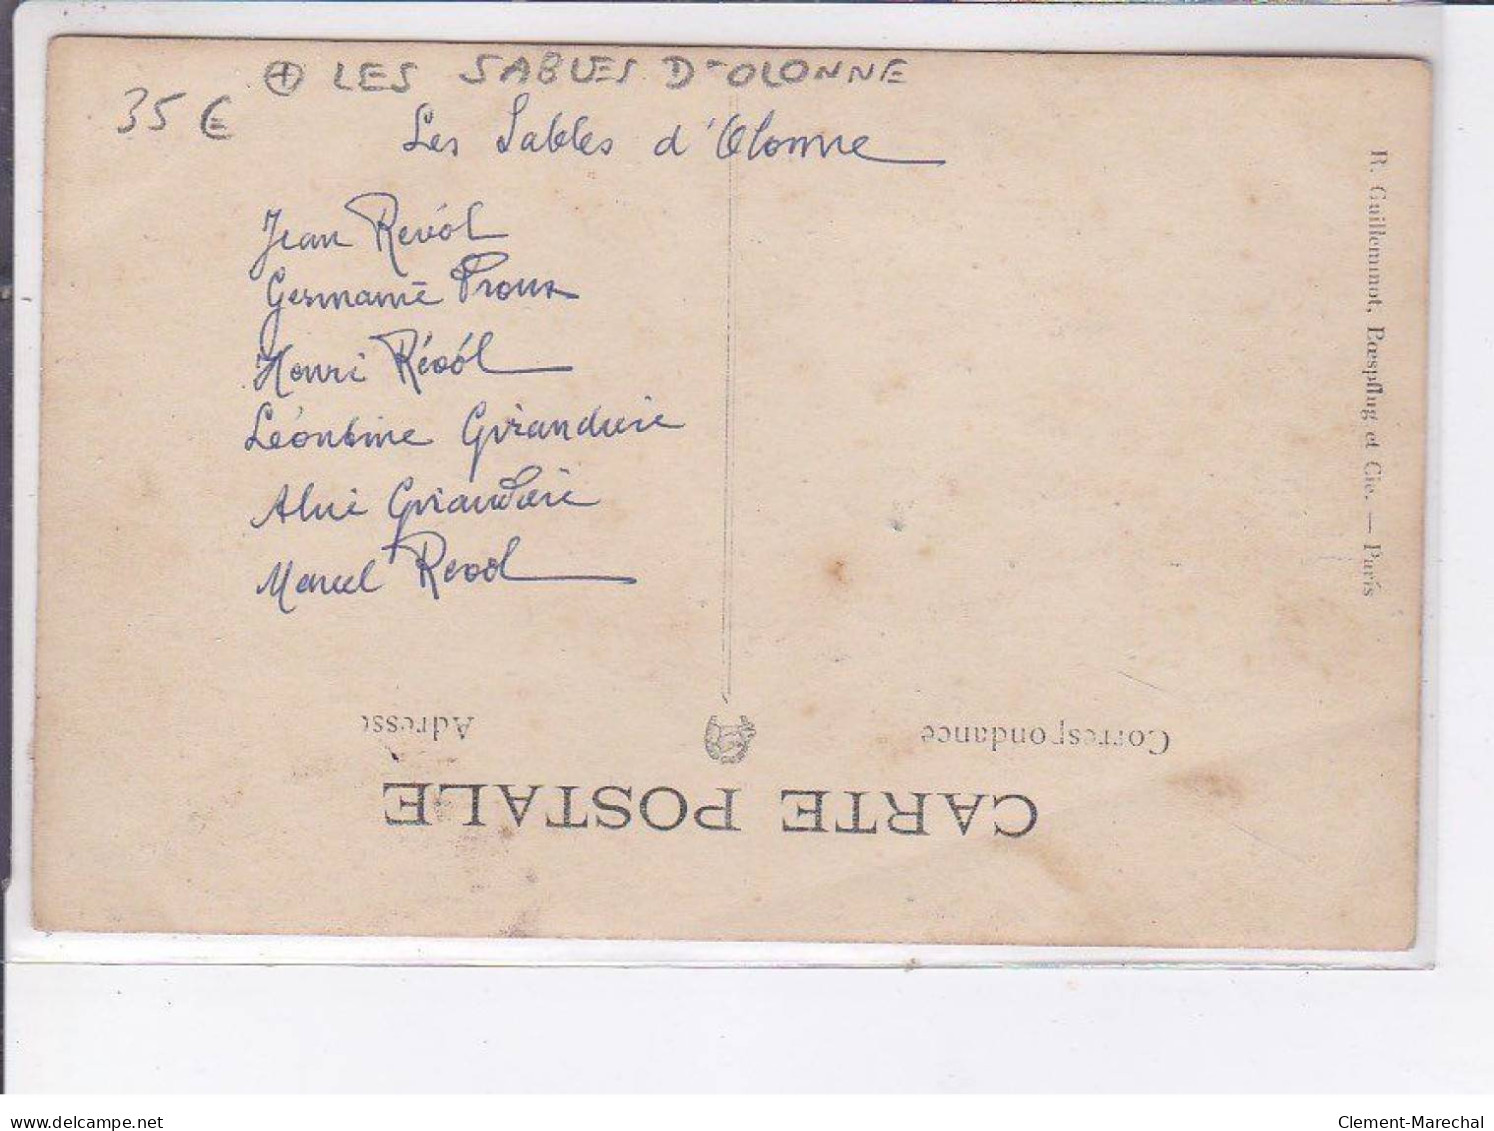 ⊕ LES SABLES D'OLONNE
35 €
Les Sables d'Olonne
Jean Revól
Germaine Proux
Henri Révól
Léontine Girandière
Aline Girandière
Marcel Revol
R. Guilleminot, Bœspflug et Cie. — Paris
Adresse
Correspondance
CARTE POSTALE
delcampe.net
Clement-Marechal